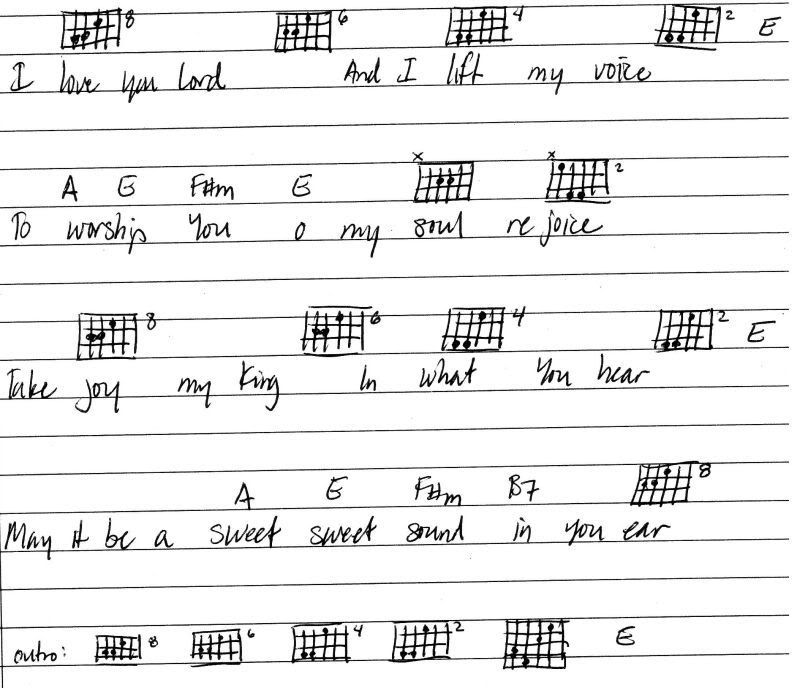 8 6 4 2 E
I love you Lord And I lift my voice
A E F#m E x x 2
To worship You o my soul rejoice
8 6 4 2 E
Take joy my King In what You hear
A E F#m B7 8
May it be a sweet sweet sound in you ear
outro: 8 6 4 2 E